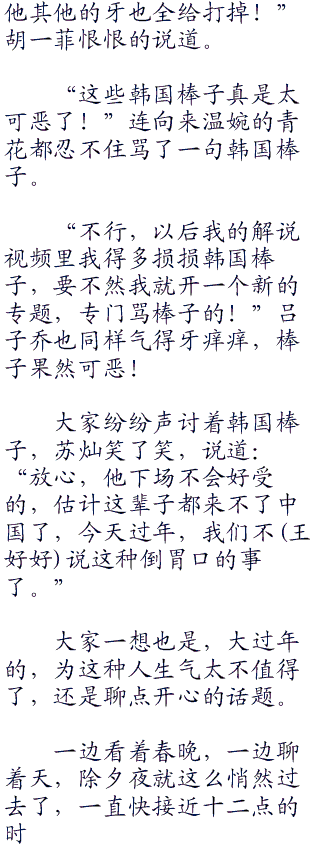 他其他的牙也全给打掉！”
胡一菲恨恨的说道。
“这些韩国棒子真是太
可恶了！”连向来温婉的青
花都忍不住骂了一句韩国棒
子。
“不行，以后我的解说
视频里我得多损损韩国棒
子，要不然我就开一个新的
专题，专门骂棒子的！”吕
子乔也同样气得牙痒痒，棒
子果然可恶！
大家纷纷声讨着韩国棒
子，苏灿笑了笑，说道：
“放心，他下场不会好受
的，估计这辈子都来不了中
国了，今天过年，我们不(王
好好)说这种倒胃口的事
了。”
大家一想也是，大过年
的，为这种人生气太不值得
了，还是聊点开心的话题。
一边看着春晚，一边聊
着天，除夕夜就这么悄然过
去了，一直快接近十二点的
时